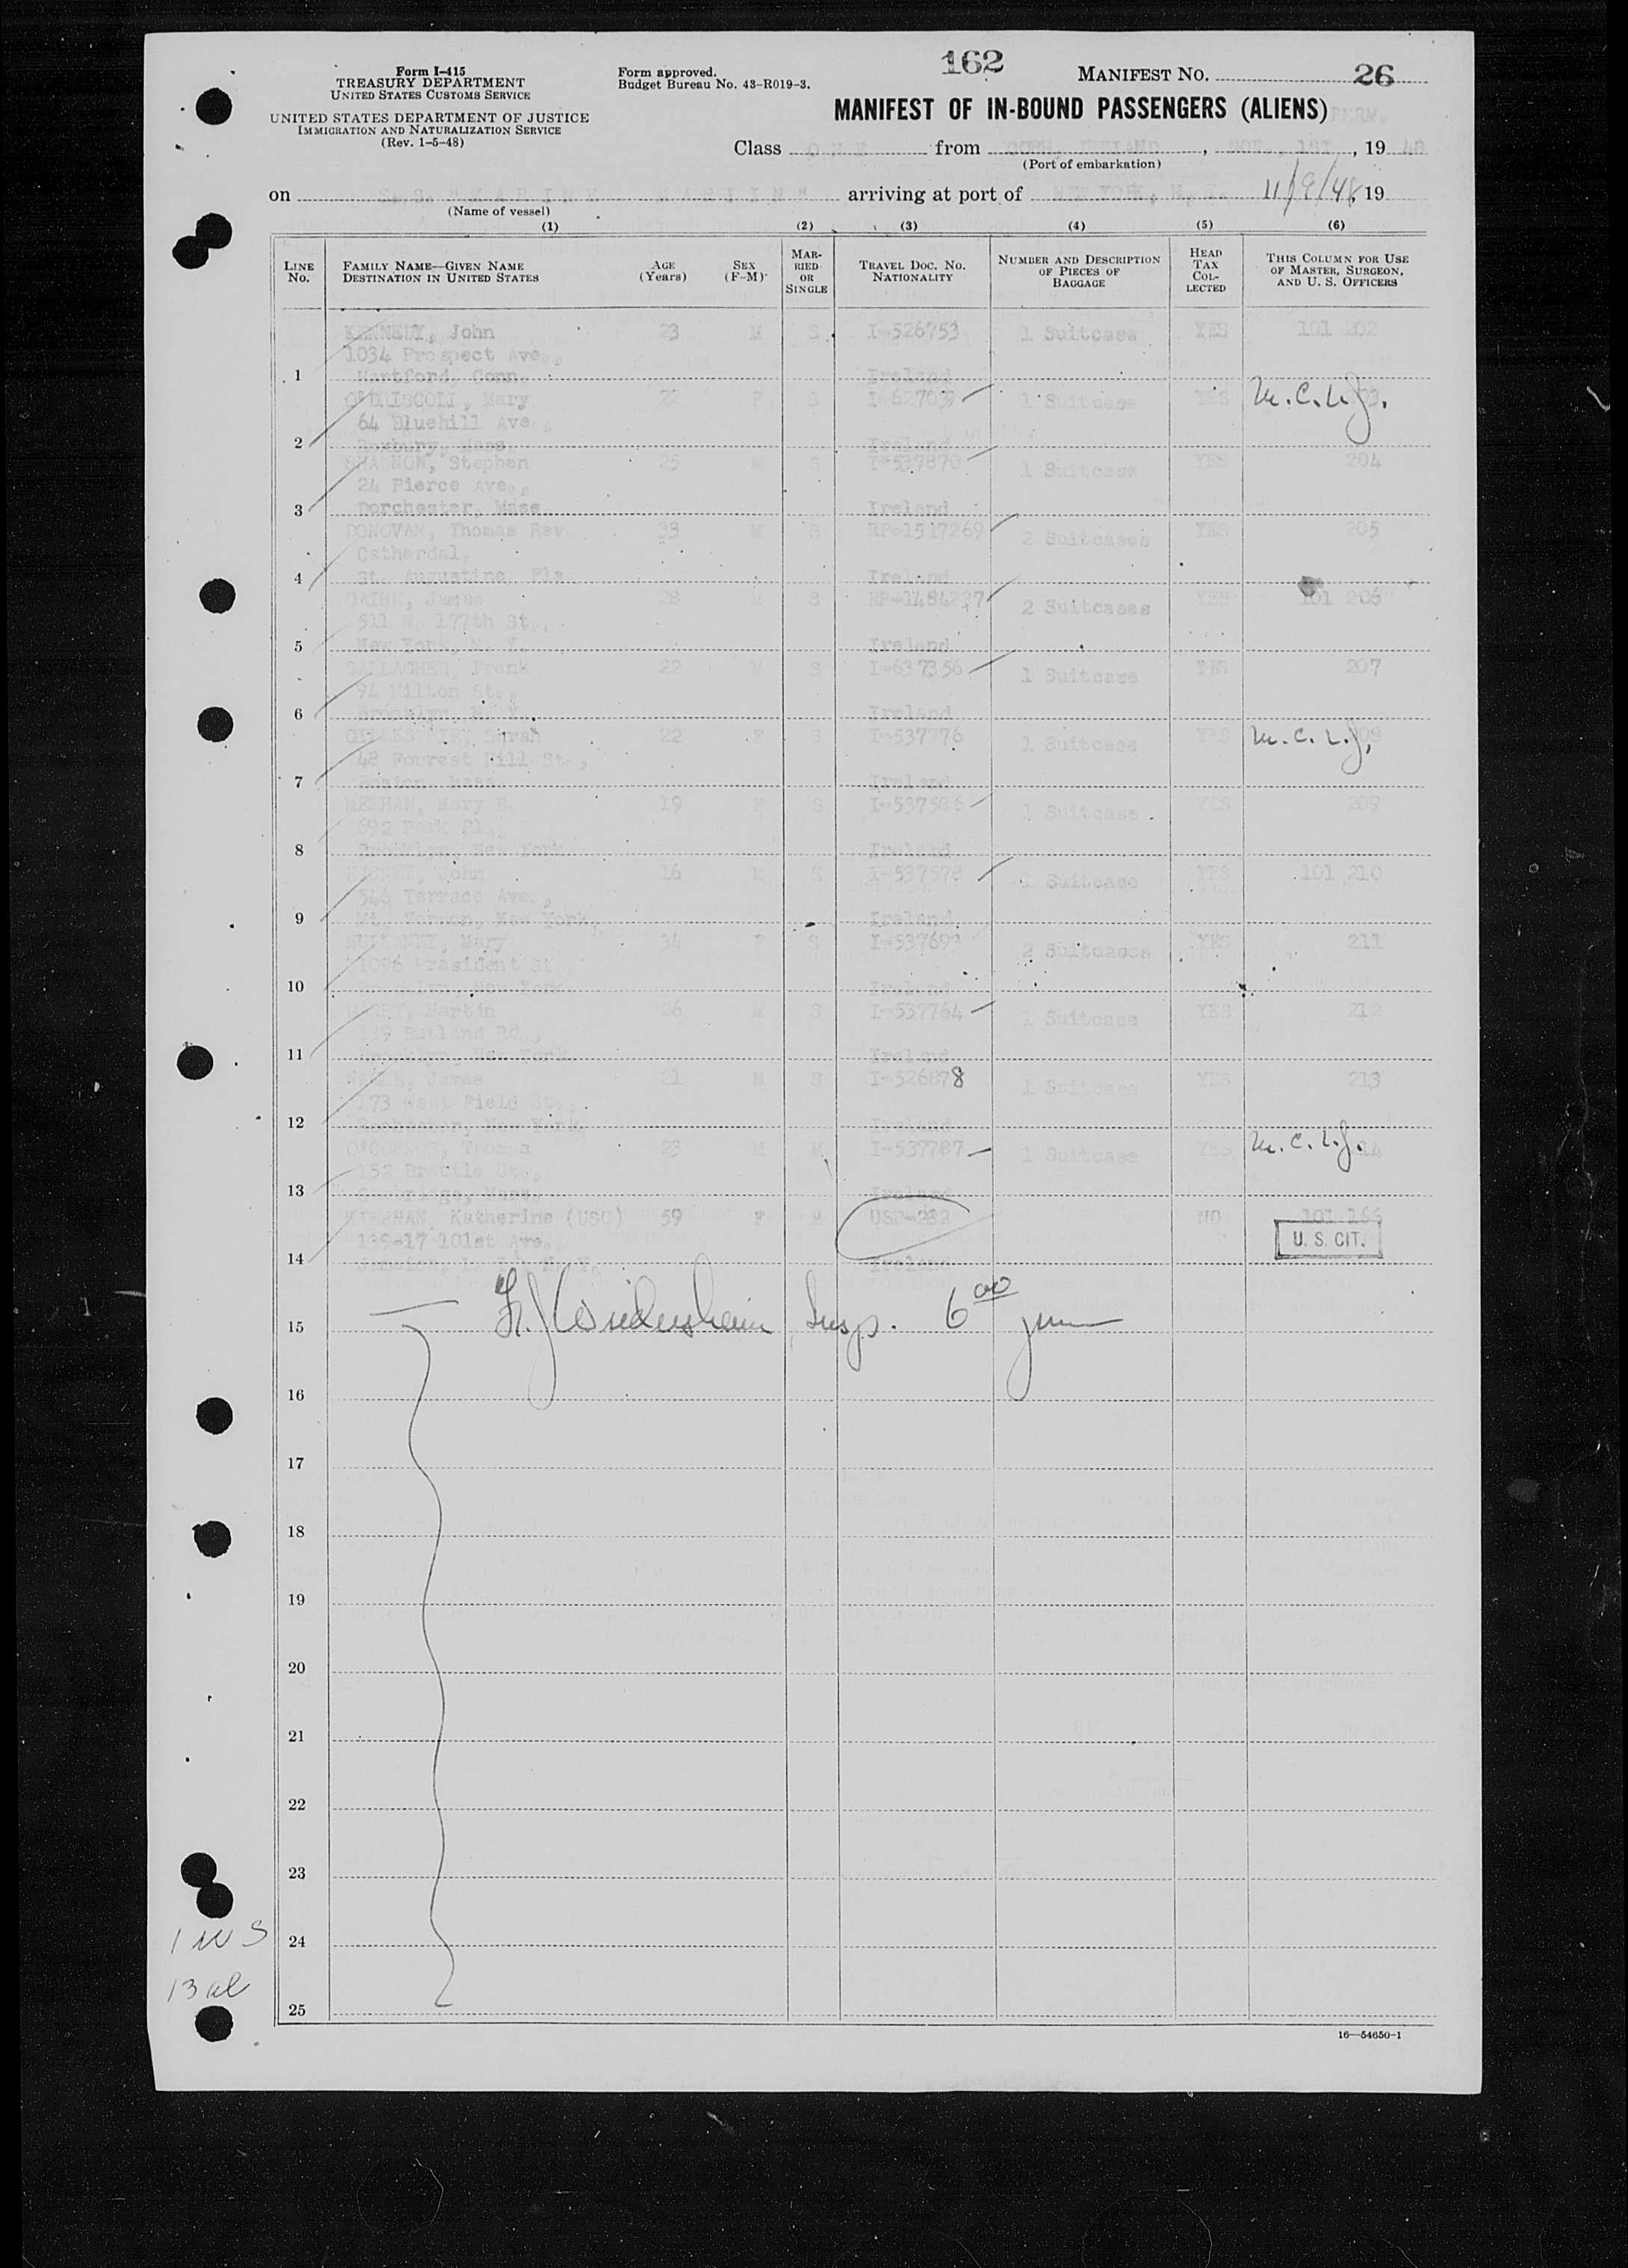 162
Form I-415
TREASURY DEPARTMENT
UNITED STATES CUSTOMS SERVICE
Form approved.
Budget Bureau No. 43-R019-3.
MANIFEST NO. 26
UNITED STATES DEPARTMENT OF JUSTICE
IMMIGRATION AND NATURALIZATION SERVICE
(Rev. 1-5-48)
MANIFEST OF IN-BOUND PASSENGERS (ALIENS) PERM.
Class ONE from COBH, IRELAND, NOV. 1ST, 19 48
(Port of embarkation)
on S.S. "MARINE MARLIN" arriving at port of NEW YORK, N. Y. 11/9/48, 19
(Name of vessel)
(1) (2) (3) (4) (5) (6)
LINE No. FAMILY NAME—GIVEN NAME DESTINATION IN UNITED STATES AGE (Years) SEX (F-M) MARRIED OR SINGLE TRAVEL DOC. No. NATIONALITY NUMBER AND DESCRIPTION OF PIECES OF BAGGAGE HEAD TAX COLLECTED THIS COLUMN FOR USE OF MASTER, SURGEON, AND U. S. OFFICERS
KENNEDY, John 23 M S I-526753 1 Suitcase YES 101 202
1034 Prospect Ave.,
1 Hartford, Conn. Ireland
O'DRISCOLL, Mary 22 F S I-627039 1 Suitcase YES M.C.L.J.
64 Bluehill Ave.,
2 Roxbury, Mass. Ireland
SHANNON, Stephen 25 M S I-537870 1 Suitcase YES 204
24 Pierce Ave.,
3 Dorchester, Mass. Ireland
DONOVAN, Thomas Rev. M S RP-1517269 2 Suitcases YES 205
Catherdal,
4 St. Augustine, Fla. Ireland
James 28 M S RP-1484237 2 Suitcases YES 101 206
511 W. 177th St.,
5 New York, N. Y. Ireland
GALLAGHER, Frank M S I-637356 1 Suitcase YES 207
94 Milton St.,
6 Brooklyn, N. Y. Ireland
Sarah 22 F S I-537776 1 Suitcase YES M.C.L.J.
48 Forrest Hill St.,
7 Boston, Mass. Ireland
MEEHAN, Mary 19 F S I-537586 1 Suitcase YES 209
692 Park Pl.,
8 Brooklyn, New York Ireland
John 16 M S I-537578 1 Suitcase YES 101 210
546 Terrace Ave.,
9 Mt. Vernon, New York, Ireland
Mary 34 F S 2 Suitcases YES 211
1096 President St.
10 Brooklyn, New York Ireland
Martin 26 M S I-537764 1 Suitcase YES 212
139 Rutland Rd.,
11 Brooklyn, New York Ireland
James 21 M S I-526878 1 Suitcase YES 213
173 West Field St.,
12 Rochester, New York. Ireland
O'CONNOR, Thomas 23 M M I-537787 1 Suitcase YES M.C.L.J.
152 Brattle St.,
13 Cambridge, Mass. Ireland
Katherine (USC) 59 F M NO 101 166
139-17 101st Ave.,
14 Jamaica, L. I., N. Y. Ireland U. S. CIT.
15 Insp. 6 00 pm
16
17
18
19
20
21
22
23
1 W S
24
13 al
25
16—54650-1